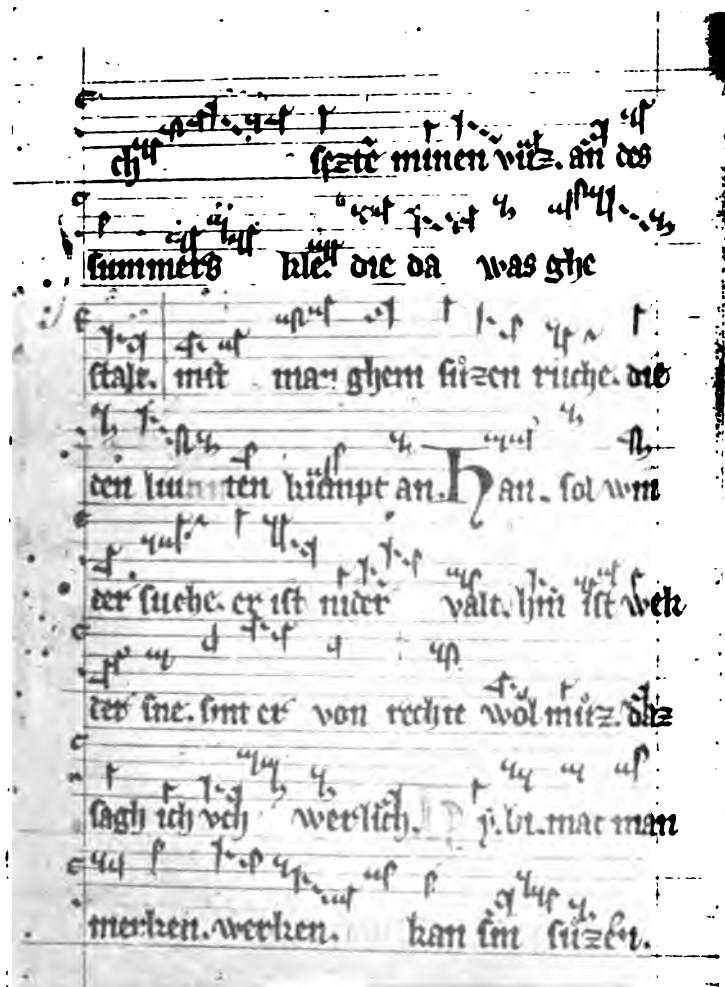 ch sezte minen vůz. an des
summers kle. die da was ghe
stalt. mit man ghem sůzen ruche. die
den kůmpt an. Han. sol win
ter suche. er ist nider valt. hin ist wek
der sne. sint er von rechte wol můz. daz
sagh ich vch werlich. bi. mac man
merken. werken. kan sin sůzen.